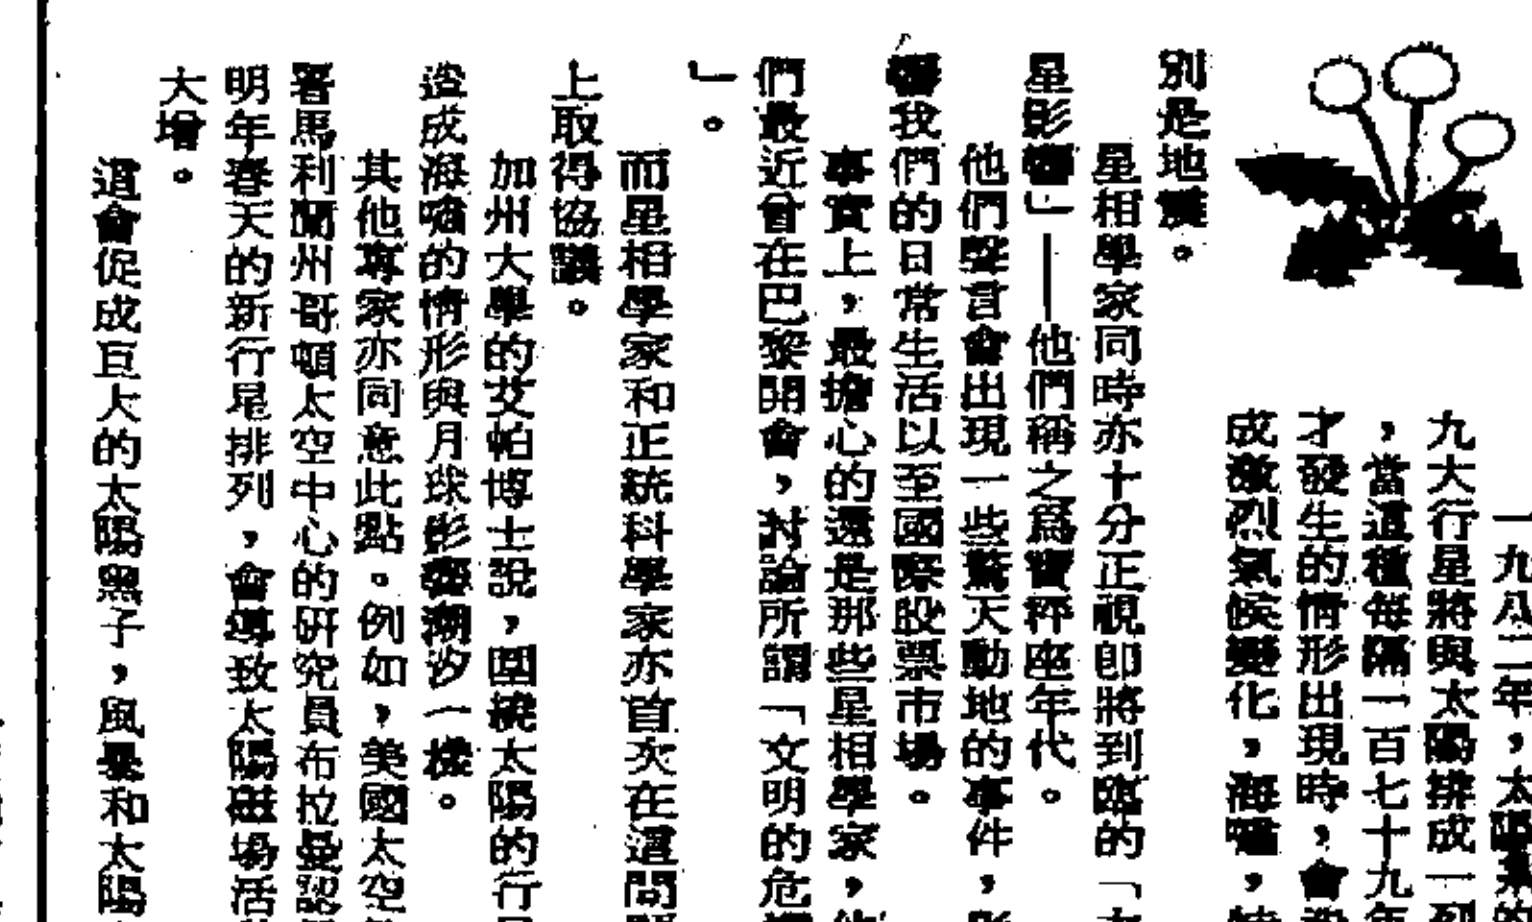 一九八二年，太陽系的
九大行星將與太陽排成一列
，當這種每隔一百七十九年
才發生的情形出現時，會造
成激烈氣候變化，海嘯，特
別是地震。
星相學家同時亦十分正視即將到臨的「木
星影響」——他們稱之為寶秤座年代。
他們聲言會出現一些驚天動地的事件，影
響我們的日常生活以至國際股票市場。
事實上，最擔心的還是那些星相學家，他
們最近曾在巴黎開會，討論所謂「文明的危機
」。
而星相學家和正統科學家亦首次在這問題
上取得協議。
加州大學的艾帕博士說，圍繞太陽的行星
造成海嘯的情形與月球影響潮汐一樣。
其他專家亦同意此點。例如，美國太空
署馬利蘭州哥頓太空中心的研究員布拉曼認
明年春天的新行星排列，會導致太陽磁場活
大增。
這會促成巨大的太陽黑子，風暴和太陽